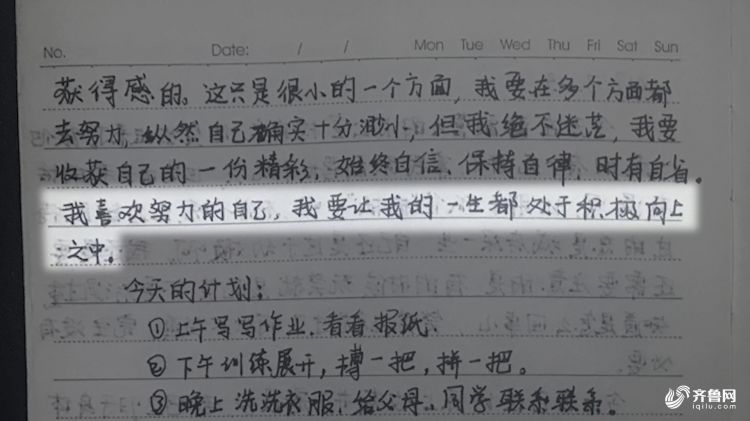 No. Date: / / Mon Tue Wed Thu Fri Sat Sun
获得感的。这只是很小的一个方面，我要在多个方面都
去努力，纵然自己确实十分渺小，但我绝不迷茫，我要
收获自己的一份精彩，始终自信、保持自律，时有自省。
我喜欢努力的自己，我要让我的一生都处于积极向上
之中。
今天的计划：
①上午写写作业，看看报纸、
②下午训练展开，搏一把，拼一把。
③晚上洗洗衣服，给父母、同学联系联系。
齐鲁网
iqilu.com